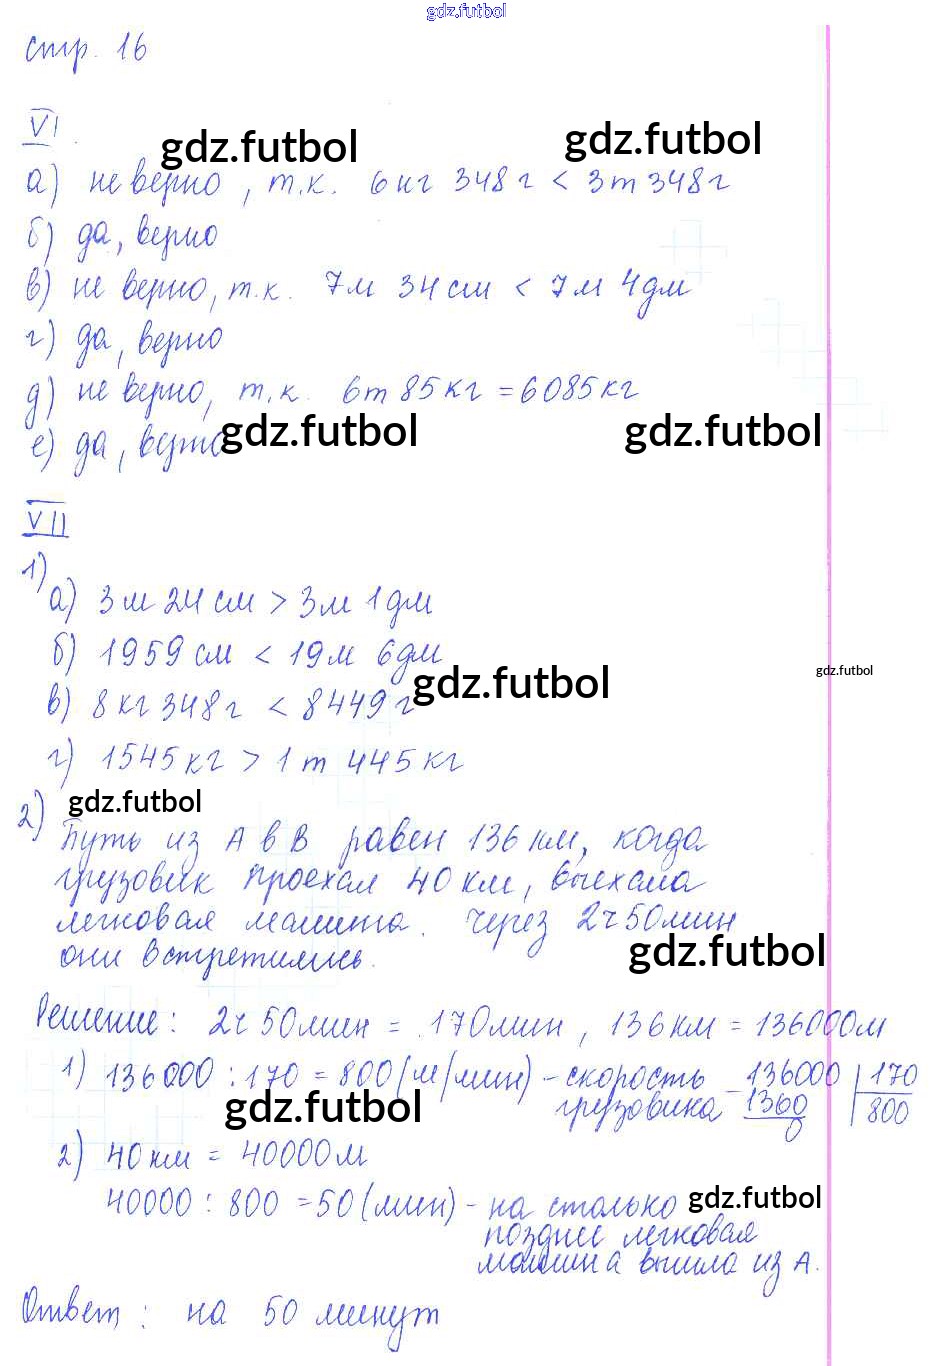 gdz.futbol
стр. 16
VI.
gdz.futbol gdz.futbol
а) не верно, т.к. 6кг 348г < 3т 348г
б) да, верно
в) не верно, т.к. 7м 34см < 7м 4дм
г) да, верно
д) не верно, т.к. 6т 85кг = 6085кг
е) да, верно
gdz.futbol gdz.futbol
VII
1)
а) 3м 24см > 3м 1дм
б) 1959см < 19м 6дм
gdz.futbol gdz.futbol
в) 8кг 348г < 8449г
г) 1545кг > 1т 445кг
2) gdz.futbol
Путь из А в В равен 136км, когда
грузовик проехал 40км, выехала
легковая машина. Через 2ч 50мин
они встретились.
gdz.futbol
Решение: 2ч 50мин = 170мин, 136км = 136000м
1) 136000 : 170 = 800 (м/мин) - скорость
грузовика
136000 | 170
1360 800
0
gdz.futbol
2) 40км = 40000м
40000 : 800 = 50 (мин) - на столько
gdz.futbol
позднее легковая
машина вышла из А.
Ответ: на 50 минут